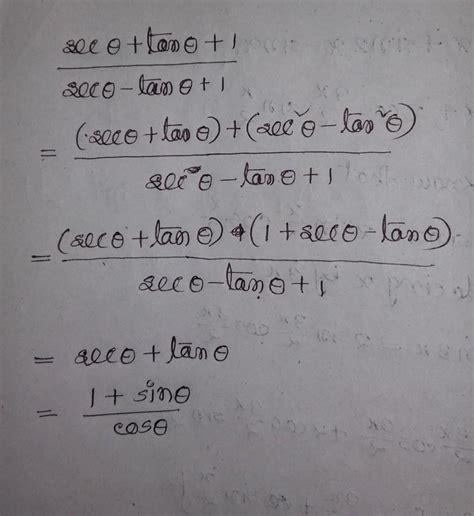 secθ + tanθ + 1
secθ - tanθ + 1
= (secθ + tanθ) + (sec²θ - tan²θ)
sec θ - tanθ + 1
= (secθ + tanθ) (1 + secθ - tanθ)
secθ - tanθ + 1
= secθ + tanθ
= 1 + sinθ
cosθ